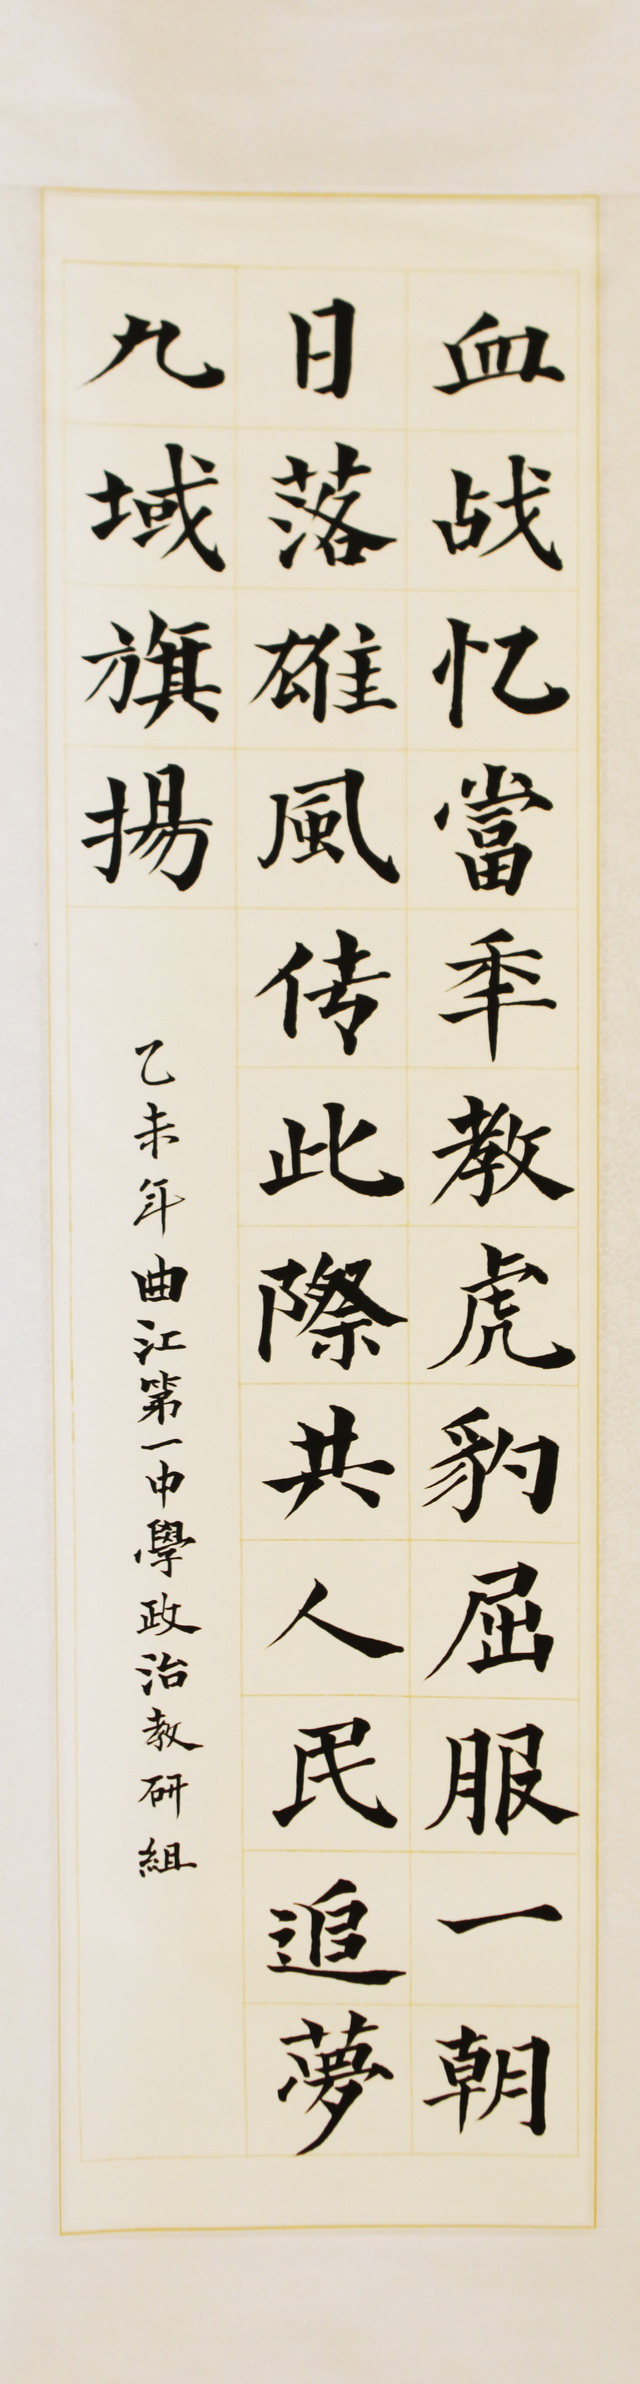 血战忆當年教虎豹屈服一朝
日落雄風传此際共人民追夢
九域旗揚
乙未年曲江第一中學政治教研組